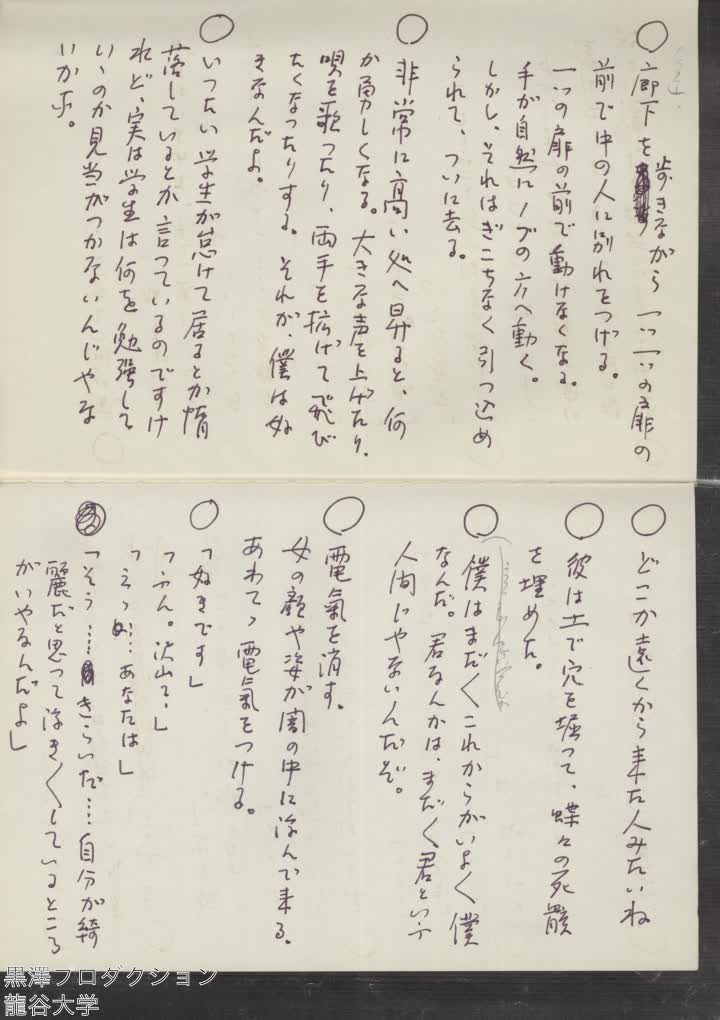 ○ 廊下を歩きながら一つ一つの扉の
前で中の人に別れをつげる。
一つの扉の前で動けなくなる。
手が自然にノブの方へ動く。
しかし、それはぎこちなく引つ込め
られて、ついに去る。
○ 非常に高い処へ昇ると、何
か勇しくなる。大きな声を上げたり、
唄を歌つたり、両手を拡げて飛び
たくなつたりする。それが、僕は好
きなんだよ。
○ いつたい学生が怠けて居るとか惰
落しているとか言つているのですけ
れど、実は学生は何を勉強して
いゝのか見当がつかないんじやな
いか。
○ どこか遠くから来た人みたいね
○ 彼は土で穴を掘つて、蝶々の死骸
を埋めた。
○ 僕はまだ〱これからがいよ〱僕
なんだ。君なんかは、まだ〱君という
人間じやないんだぞ。
○ 電氣を消す。
女の顔や姿が闇の中に浮んで来る。
あわてゝ電氣をつける。
○ 「好きです」
「ふん。沢山て、」
「えゝ……あなたは」
「そう……きらいだ……自分が綺
麗だと思つて浮き〱しているところ
がいやるんだよ」
黒澤プロダクション
龍谷大学